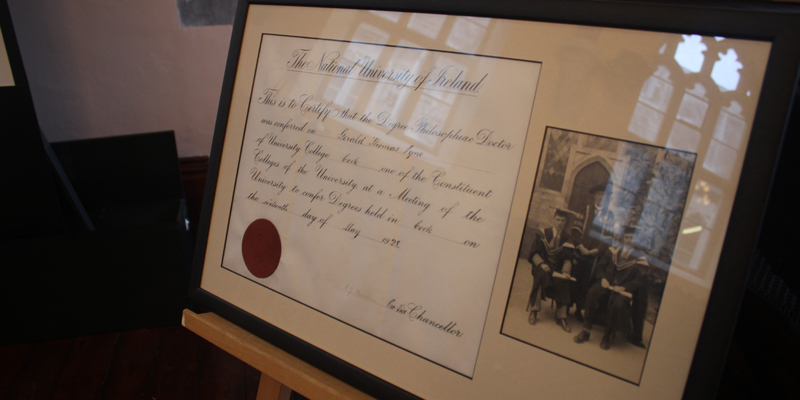 The National University of Ireland
This is to Certify that the Degree Philosophiae Doctor
was conferred on Gerald Thomas
of University College Cork one of the Constituent
Colleges of the University, at a Meeting of the
University to confer Degrees held in Cork on
the sixteenth day of May
Chancellor